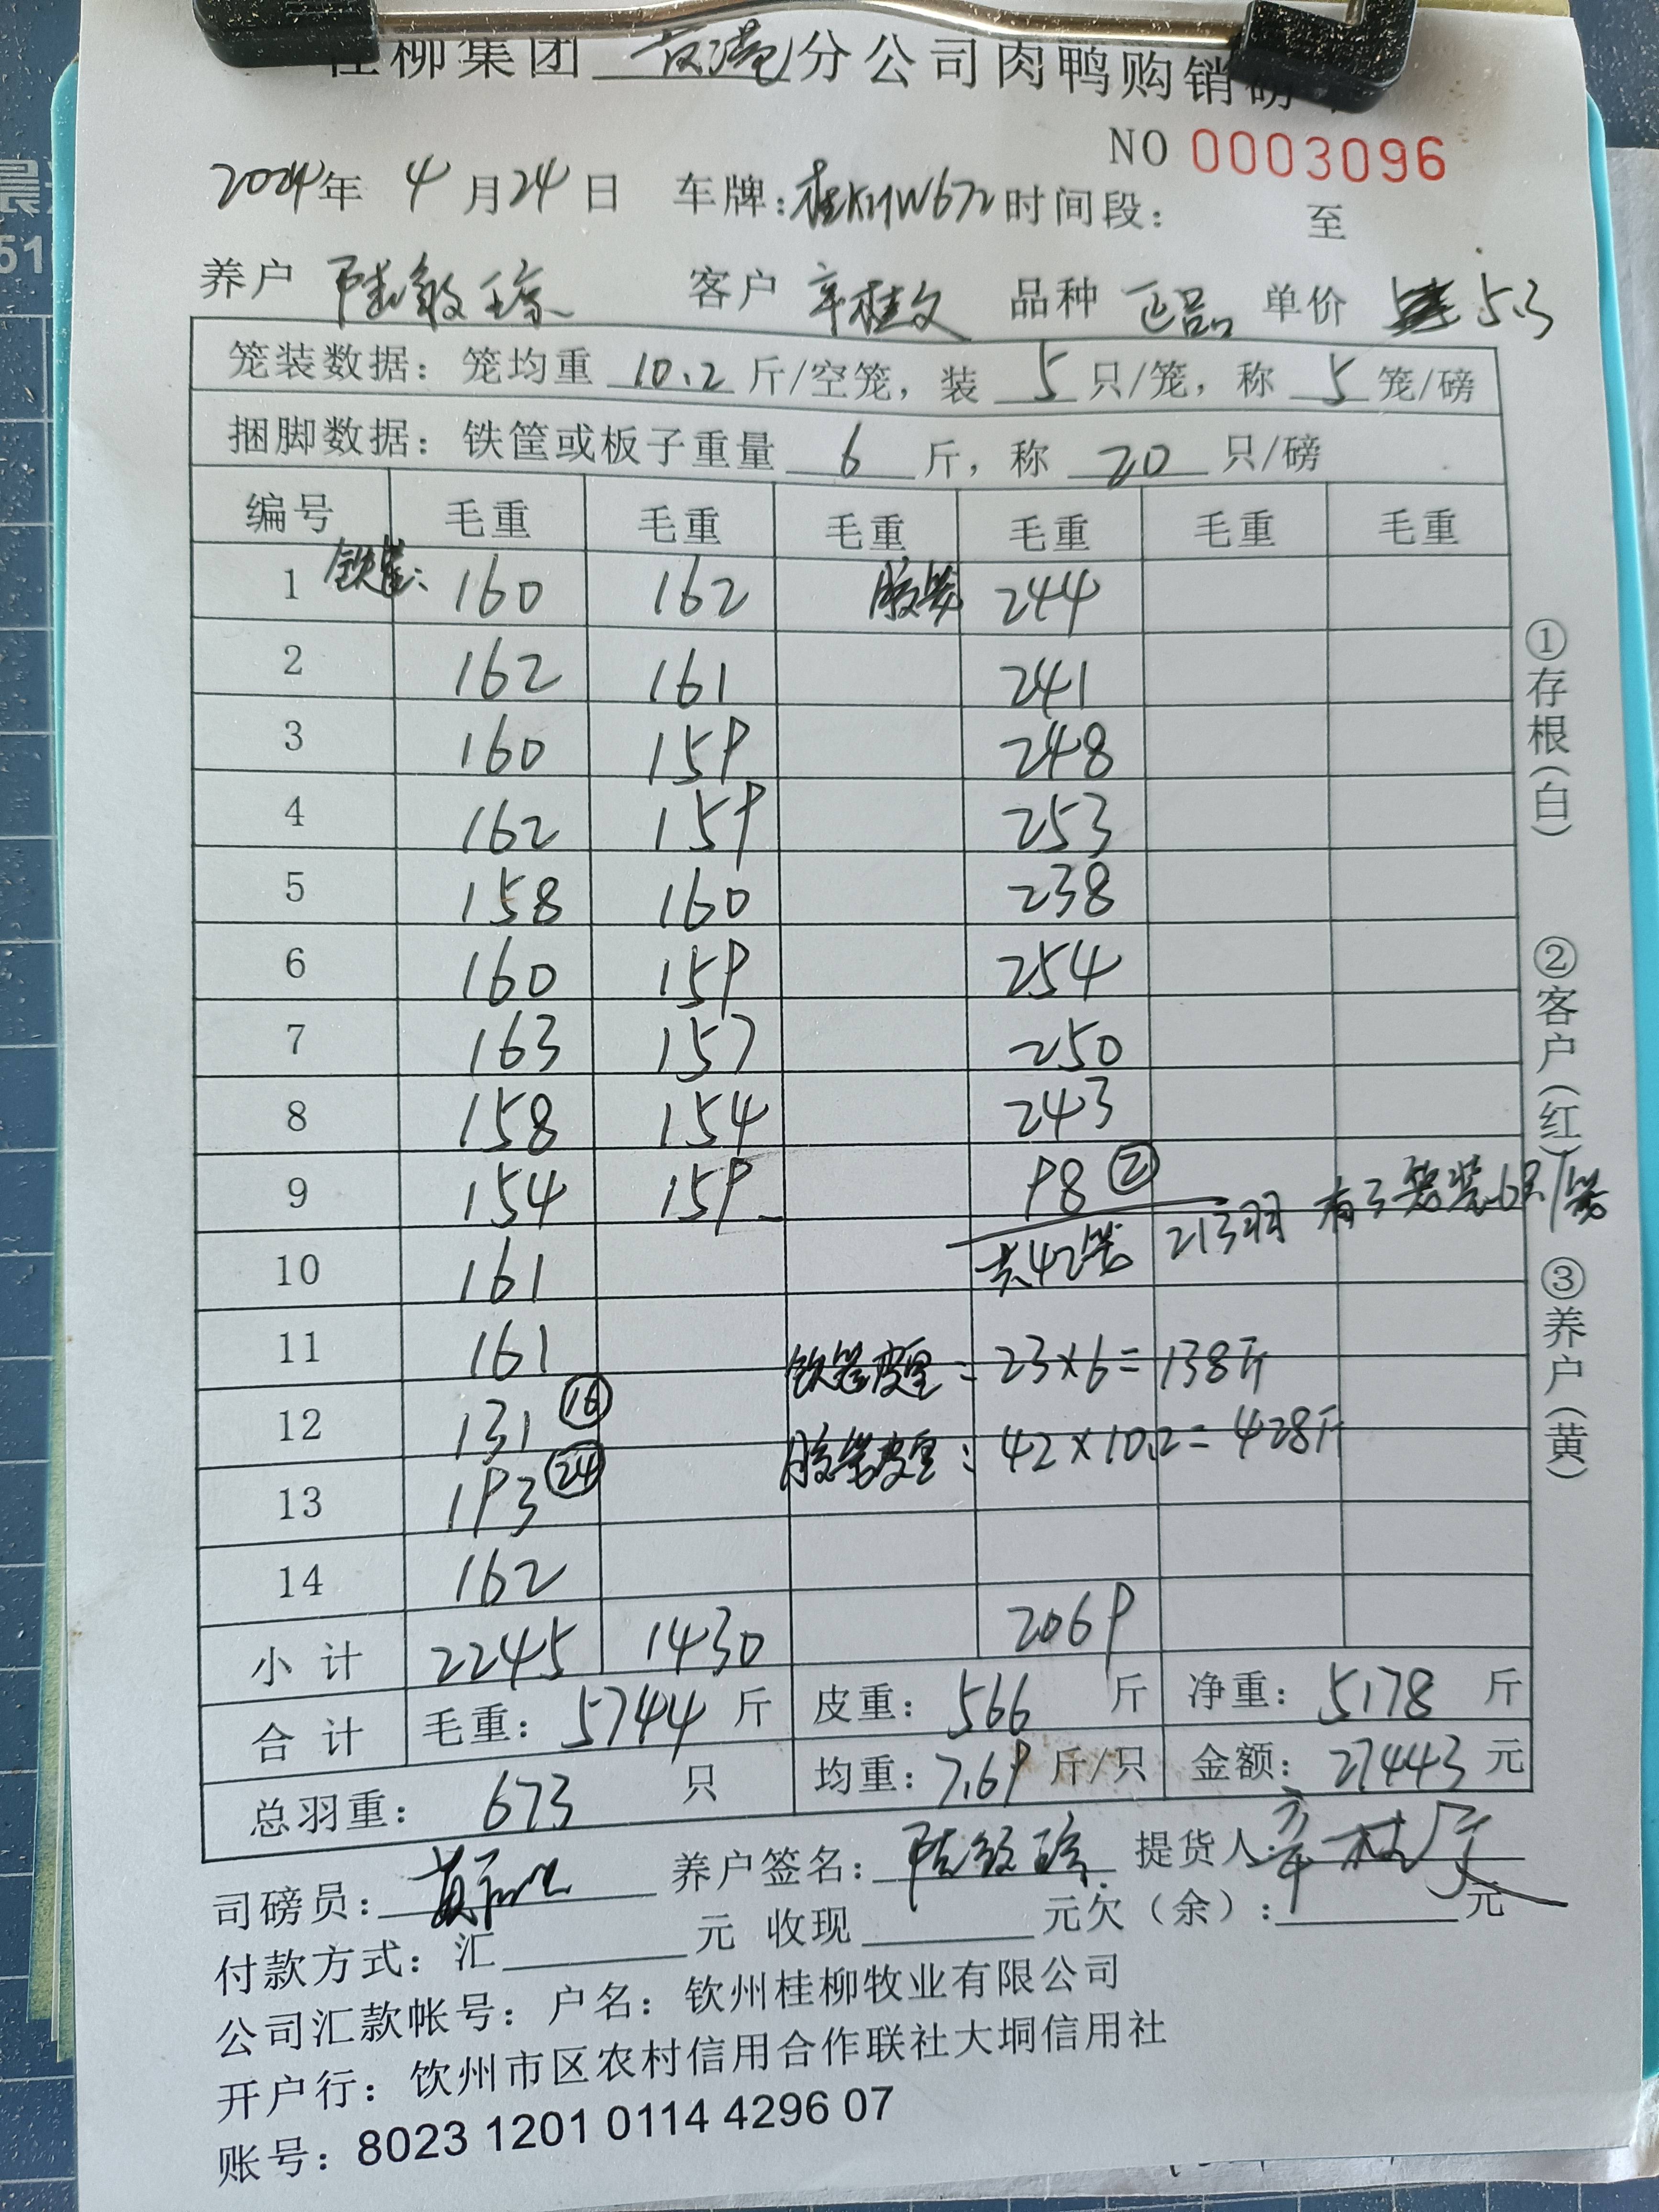 桂柳集团 贵港 分公司肉鸭购销磅
NO 0003096
2024年 4月24日 车牌:桂KMW672 时间段: 至
养户 陆敏琼 客户 辛桂文 品种 正品 单价 5.3
笼装数据: 笼均重 10.2 斤/空笼, 装 5 只/笼, 称 5 笼/磅
捆脚数据: 铁筐或板子重量 6 斤, 称 20 只/磅
编号 毛重 毛重 毛重 毛重 毛重 毛重
1 铁筐: 160 162 胶笼 244
2 162 161 241
3 160 159 248
4 162 159 253
5 158 160 238
6 160 159 254
7 163 157 250
8 158 154 243
9 154 159 98 ②
共42笼 213羽 有3笼装6只/笼
10 161
11 161 铁筐皮重: 23×6=138斤
12 131 ⑯
胶笼皮重: 42×10.2=428斤
13 193 ㉔
14 162
小计 2245 1430 2069
合计 毛重: 5744 斤 皮重: 566 斤 净重: 5178 斤
总羽重: 673 只 均重: 7.69 斤/只 金额: 27443 元
司磅员: 养户签名: 陆敏琼 提货人: 辛桂文
付款方式: 汇 元 收现 元欠(余): 元
公司汇款帐号: 户名: 钦州桂柳牧业有限公司
开户行: 钦州市区农村信用合作联社大垌信用社
账号: 8023 1201 0114 4296 07
①存根(白)
②客户(红)
③养户(黄)
晨
51